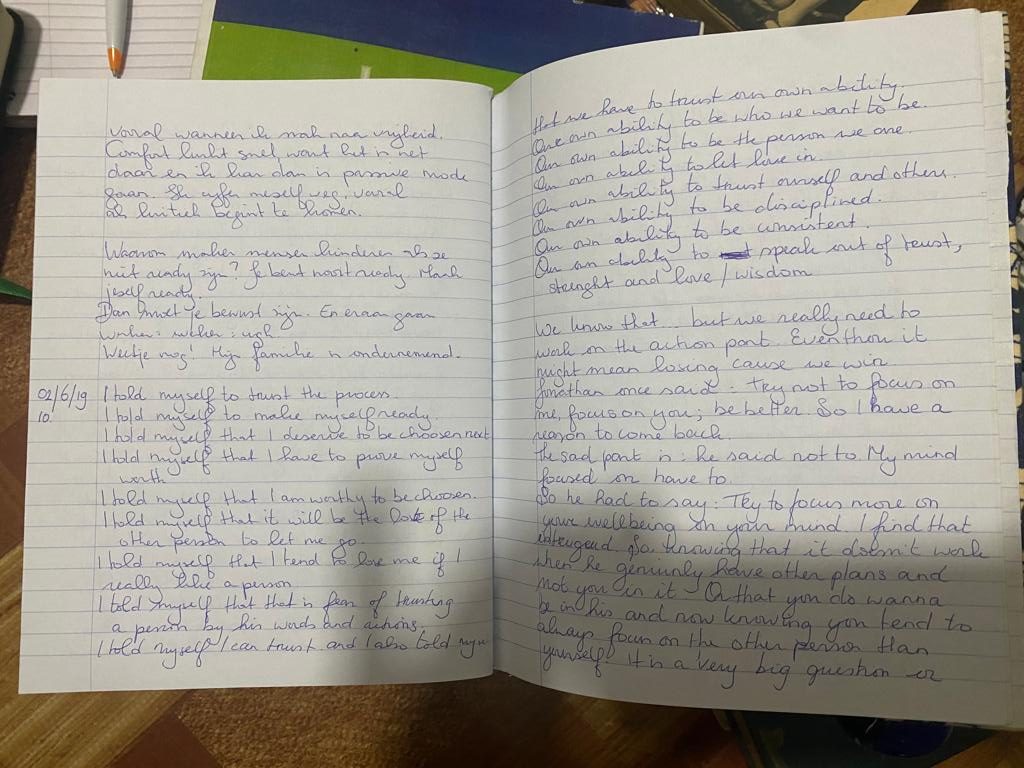 vooral wanneer ik snak naa vrijheid.
Comfort lucht snel, want het is net
daar en ik kan dan in passive mode
gaan. Ik cijfer meself weg, vooral
als kritiek begint te komen.
Waarom maken mensen kinderen als ze
niet ready zijn? Je bent nooit ready. Maak
jeself ready.
Dan moet je bewust zijn. En eraan gaan
werken
Weetje nog! Mijn familie is ondernemend.
02/6/19
10.
I told myself to trust the process.
I told myself to make myself ready.
I told myself that I deserve to be choosen next
I told myself that I have to prove myself
worth
I told myself that I am worthy to be choosen.
I told myself that it will be the loss of the
other person to let me go.
I told myself that I tend to lose me if I
really like a person
I told myself that that is fear of trusting
a person by his words and actions.
I told myself I can trust and I also told myse
that we have to trust our own ability
Our own ability to be who we want to be.
Our own ability to be the person we are.
Our own ability to let love in.
Our own ability to trust ourself and others.
Our own ability to be disciplined.
Our own ability to be consistent.
Our own ability to speak out of trust,
strenght and love / wisdom
We know that... but we really need to
work on the action part. Eventhou it
might mean losing cause we win
Jonathan once said: Try not to focus on
me, focus on you; be better So I have a
reason to come back.
the sad part is: he said not to. My mind
focused on have to.
So he had to say: Try to focus more on
your wellbeing on your mind I find that
So, knowing that it doesn't work
when he genuinly have other plans and
not you in it. Or that you do wanna
be in his and now knowing you tend to
always focus on the other person than
yourself! It is a very big question or